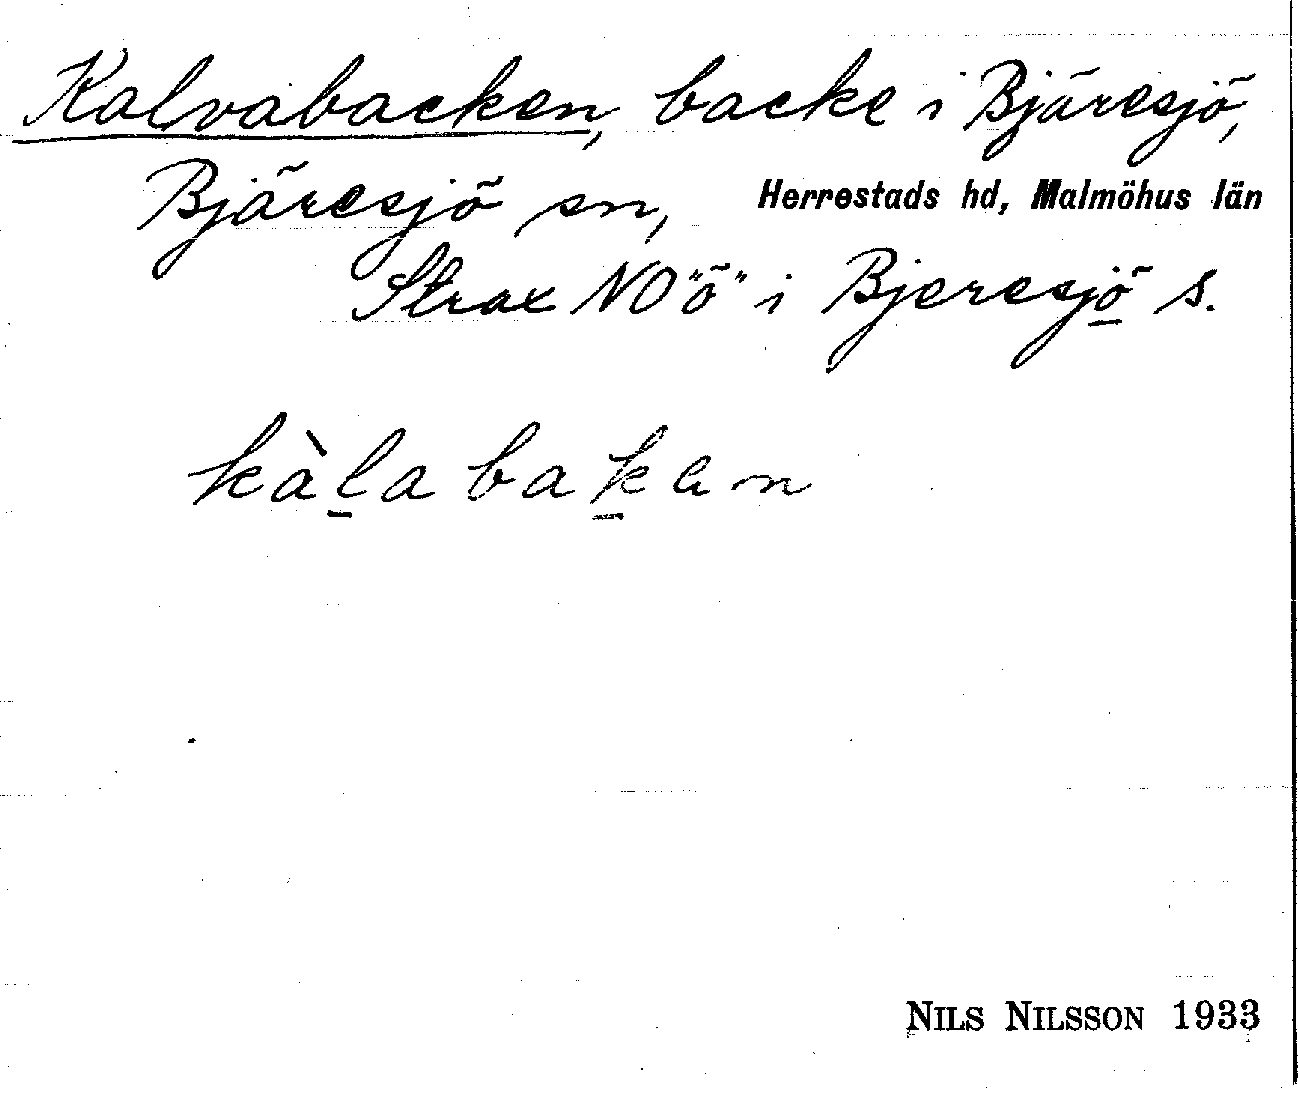 Kalvabacken, backe i Bjäresjö,
Bjäresjö sn, Herrestads hd, Malmöhus län
Strax NO "ö" i Bjeresjö s.
kàlabakan
NILS NILSSON 1933